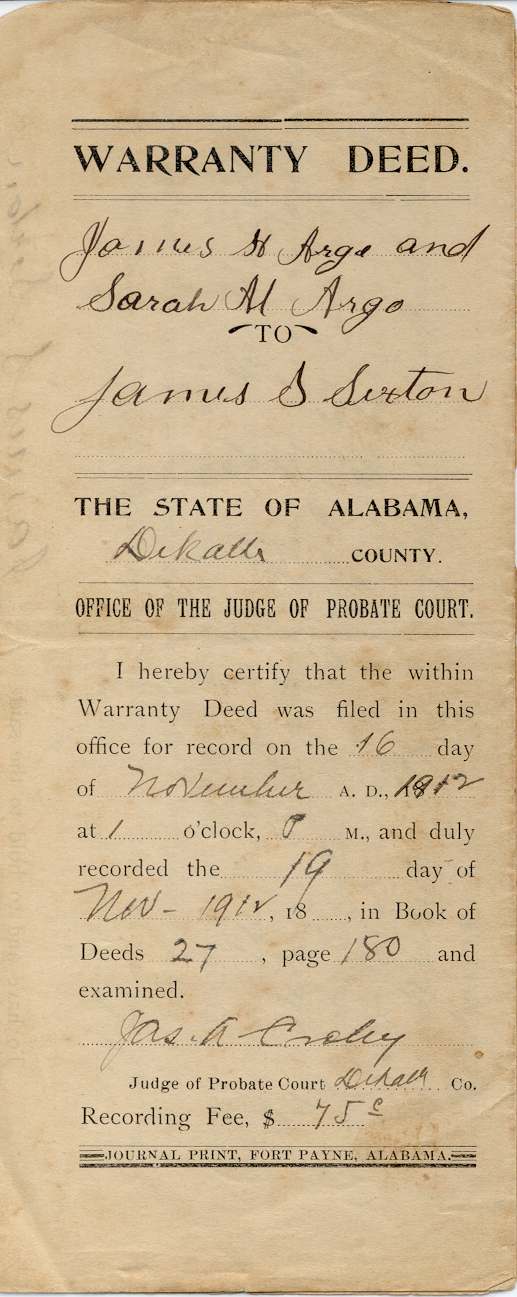 WARRANTY DEED.
James H Argo and
Sarah M Argo
TO
James S Sexton
THE STATE OF ALABAMA,
Dekalb COUNTY.
OFFICE OF THE JUDGE OF PROBATE COURT.
I hereby certify that the within
Warranty Deed was filed in this
office for record on the 16 day
of November A. D., 1912
at 1 o'clock, P M., and duly
recorded the 19 day of
Nov - 1912, 18 , in Book of
Deeds 27 , page 180 and
examined.
Jas. A Croley
Judge of Probate Court Dekalb Co.
Recording Fee, $ 75 c
JOURNAL PRINT, FORT PAYNE, ALABAMA.